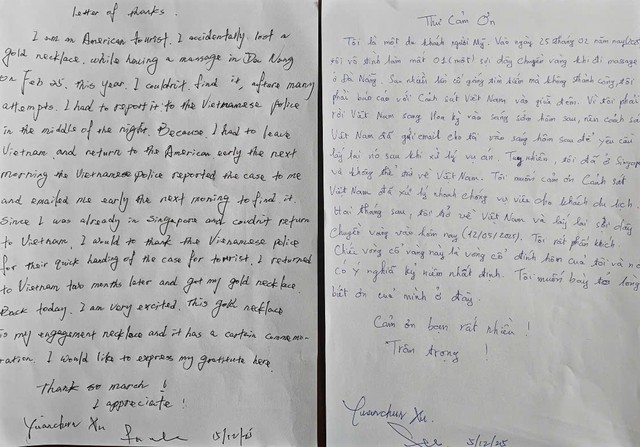 Letter of thanks.
I am an American tourist. I accidentally lost a
gold necklace, while having a massage in Da Nang
on Feb 25, this year. I couldn't find it, afters many
attempts. I had to report it to the Vietnamese police
in the middle of the night. Because, I had to leave
Vietnam and return to the American early the next
morning the Vietnamese police reported the case to me
and emailed me early the next moning to find it.
Since I was already in Singapore and couldn't return
to Vietnam, I would to thank the Vienamese police
for their quick handing of the case for tourist. I returned
to Vietnam two months later and got my gold neklace.
Back today. I am very excited. This gold necklace
is my engagement necklace and it has a certain commemo-
ration. I would like to express my gratitute here.
Thank so march !
I appreciate !
Yuanchun Xu
5/12/25
Thư Cảm Ơn
Tôi là một du khách người Mỹ. Vào ngày 25 tháng 02 năm nay
tôi vô tình làm mất 01 (một) sợi dây chuyền vàng khi đi massage
ở Đà Nẵng. Sau nhiều lần cố gắng tìm kiếm mà không thành công, tôi
phải báo cáo với Cảnh sát Việt Nam vào giữa đêm. Vì tôi phải
rời Việt Nam sang Hoa Kỳ vào sáng sớm hôm sau, nên cảnh sát
Việt Nam đã gửi email cho tôi vào sáng hôm sau để yêu cầu
lấy lại nó sau khi xử lý vụ án. Tuy nhiên, tôi đã ở Singapo
và không thể trở về Việt Nam. Tôi muốn cảm ơn Cảnh sát
Việt Nam đã xử lý nhanh chóng vụ việc cho khách du lịch.
Hai tháng sau, tôi trở về Việt Nam và lấy lại sợi dây
chuyền vàng vào hôm nay (12/05/2025). Tôi rất phấn khích
Chiếc vòng cổ vàng này là vòng cổ đính hôn của tôi và nó
có ý nghĩa kỷ niệm nhất định. Tôi muốn bày tỏ lòng
biết ơn của mình ở đây.
Cảm ơn bạn rất nhiều !
Trân trọng !
Yuanchun Xu
5/12/25